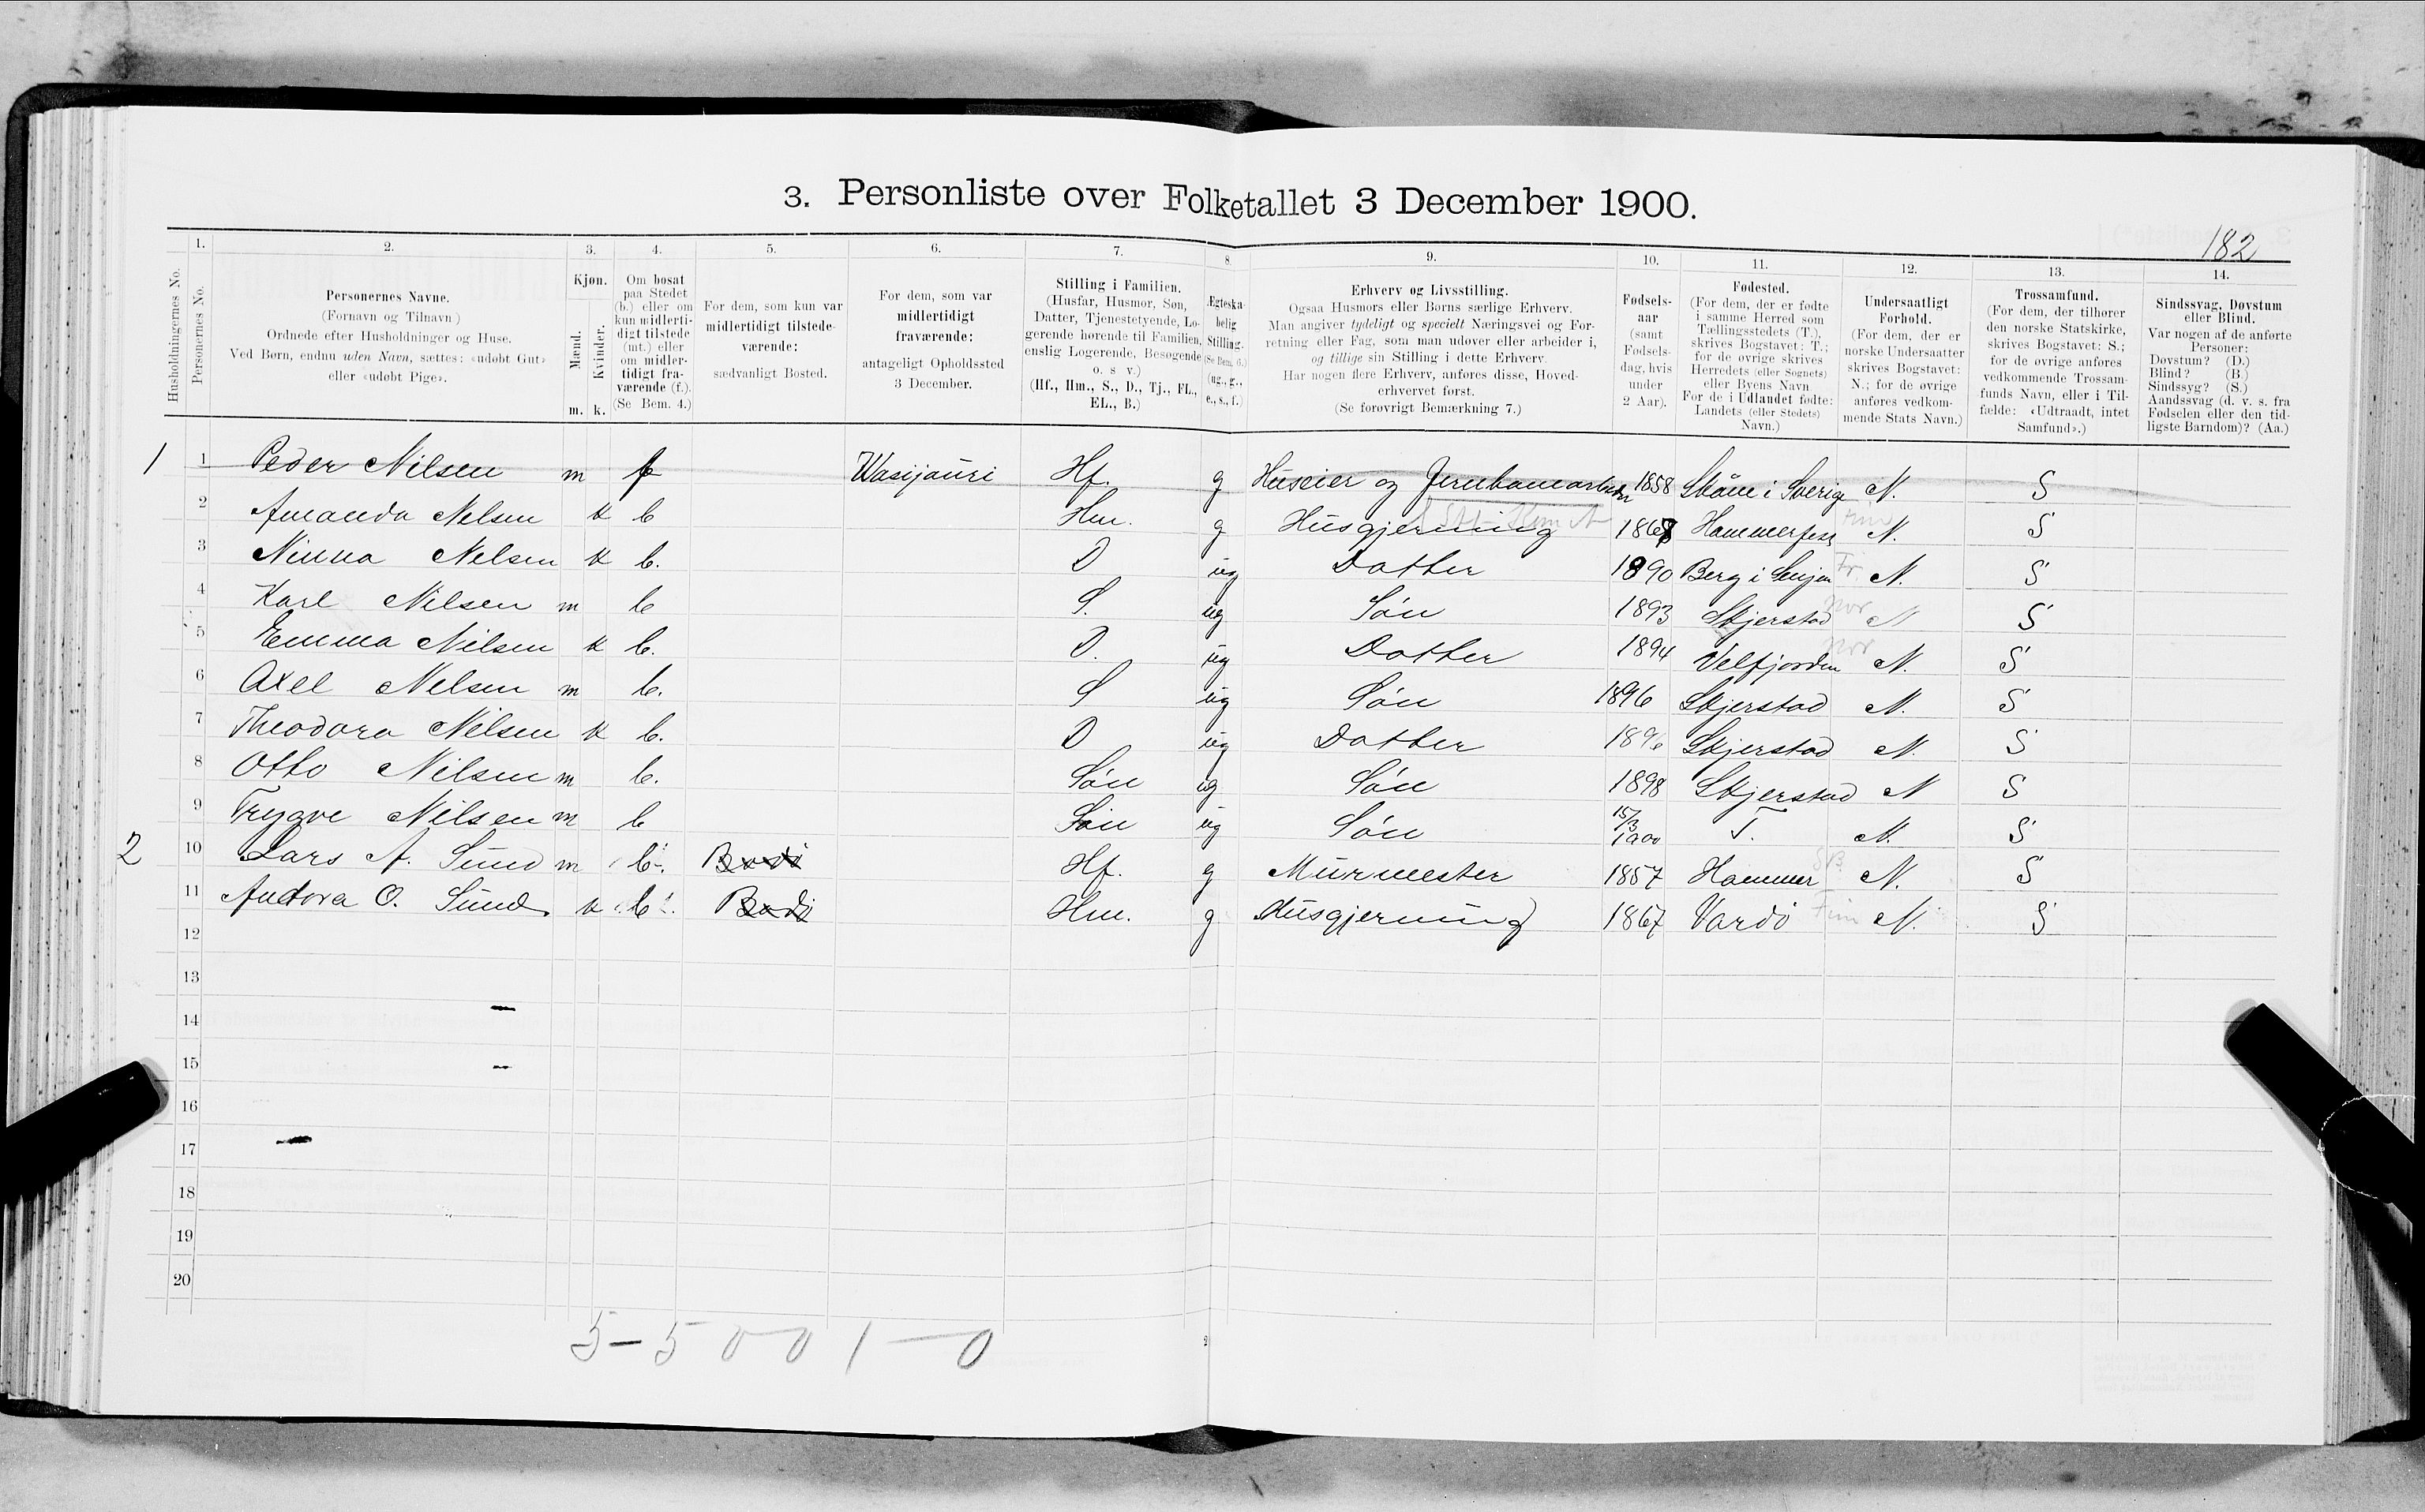 3. Personliste over Folketallet 3 December 1900.
182
1. 2. 3. 4. 5. 6. 7. 8. 9. 10. 11. 12. 13. 14.
Husholdningernes No.
Personernes No.
Personernes Navne.
(Fornavn og Tilnavn)
Ordnede efter Husholdninger og Huse.
Ved Børn, endnu uden Navn, sættes: «udøbt Gut»
eller «udøbt Pige».
Kjøn.
Mænd.
Kvinder.
m. k.
Om bosat
paa Stedet
(b.) eller om
kun midlerti-
digt tilstede
(mt.) eller
om midler-
tidigt fra-
værende (f.).
(Se Bem. 4.)
For dem, som kun var
midlertidigt tilstede-
værende:
sædvanligt Bosted.
For dem, som var
midlertidigt
fraværende:
antageligt Opholdssted
3 December.
Stilling i Familien.
(Husfar, Husmor, Søn,
Datter, Tjenestetyende, Lo-
gerende hørende til Familien,
enslig Logerende, Besøgende
o. s v.)
(Hf., Hm., S., D., Tj., FL.,
EL., B.)
Ægteska-
belig
Stilling.
(Se Bem. 6.)
(ug., g.,
e., s., f.)
Erhverv og Livsstilling.
Ogsaa Husmors eller Børns særlige Erhverv.
Man angiver tydeligt og specielt Næringsvei og For-
retning eller Fag, som man udøver eller arbeider i,
og tillige sin Stilling i dette Erhverv.
Har nogen flere Erhverv, anføres disse, Hoved-
erhvervet først.
(Se forøvrigt Bemærkning 7.)
Fødsels-
aar
(samt
Fødsels-
dag, hvis
under
2 Aar).
Fødested.
(For dem, der er fødte
i samme Herred som
Tællingsstedets (T.),
skrives Bogstavet: T.;
for de øvrige skrives
Herredets (eller Sognets)
eller Byens Navn
For de i Udlandet fødte:
Landets (eller Stedets)
Navn.)
Undersaatligt
Forhold.
(For dem, der er
norske Undersaatter
skrives Bogstavet:
N.; for de øvrige
anføres vedkom-
mende Stats Navn.)
Trossamfund.
(For dem, der tilhører
den norske Statskirke,
skrives Bogstavet: S.;
for de øvrige anføres
vedkommende Trossam-
funds Navn, eller i Til-
fælde: «Udtraadt, intet
Samfund».)
Sindssvag, Døvstum
eller Blind.
Var nogen af de anførte
Personer:
Døvstum? (D.)
Blind? (B.)
Sindssyg? (S.)
Aandssvag (d. v. s. fra
Fødselen eller den tid-
ligste Barndom)? (Aa.)
1 1 Peder Nilsen m f Wasijauri Hf. g Huseier og Jernbanearbeider 1858 Skåne i Sverige N. S
2 Amanda Nilsen k b Hm. g Husgjerning 1868 Hammerfest Fin N. S
3 Ninna Nilsen k b. D ug Datter 1890 Berg i Senjen Tr. N. S
4 Karl Nilsen m b S. ug Søn 1893 Skjerstad Nor N S
5 Emma Nilsen k b. D. ug Datter 1894 Velfjorden Nor N. S
6 Axel Nilsen m b. S ug Søn 1896 Skjerstad N. S
7 Theodora Nilsen k b. D ug Datter 1896 Skjerstad N. S
8 Otto Nilsen m b. Søn ug Søn 1898 Skjerstad N S
9 Trygve Nilsen m b Søn ug Søn 15/3 1900 T. N. S
2 10 Lars A. Sund m b. Bodø Hf. g Murmester 1857 Hammer N. S
11 Andora O. Sund k b. Bodø Hm. g Husgjerning 1867 Vardø Fin N. S
12
13
14
15
16
17
18
19
20
5 - 5 0 0 1 - 0